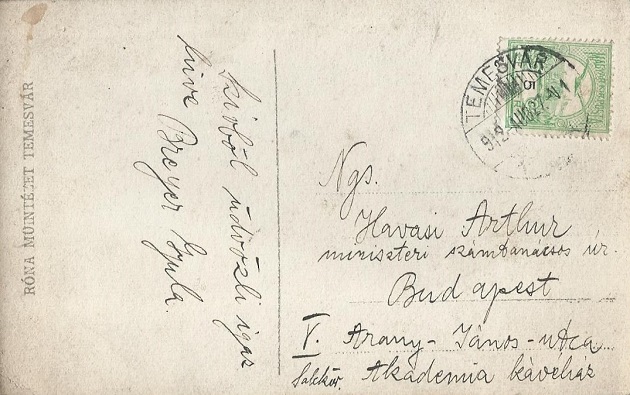 RÓNA MŰINTÉZET TEMESVÁR
Szivből üdvözli igaz
hive Breyer Gyula.
TEMESVÁR
Ngs.
Havasi Arthur
miniszteri számtanácsos úr.
Budapest
V. Arany-János-utca
Sakkör. Akadémia kávéház